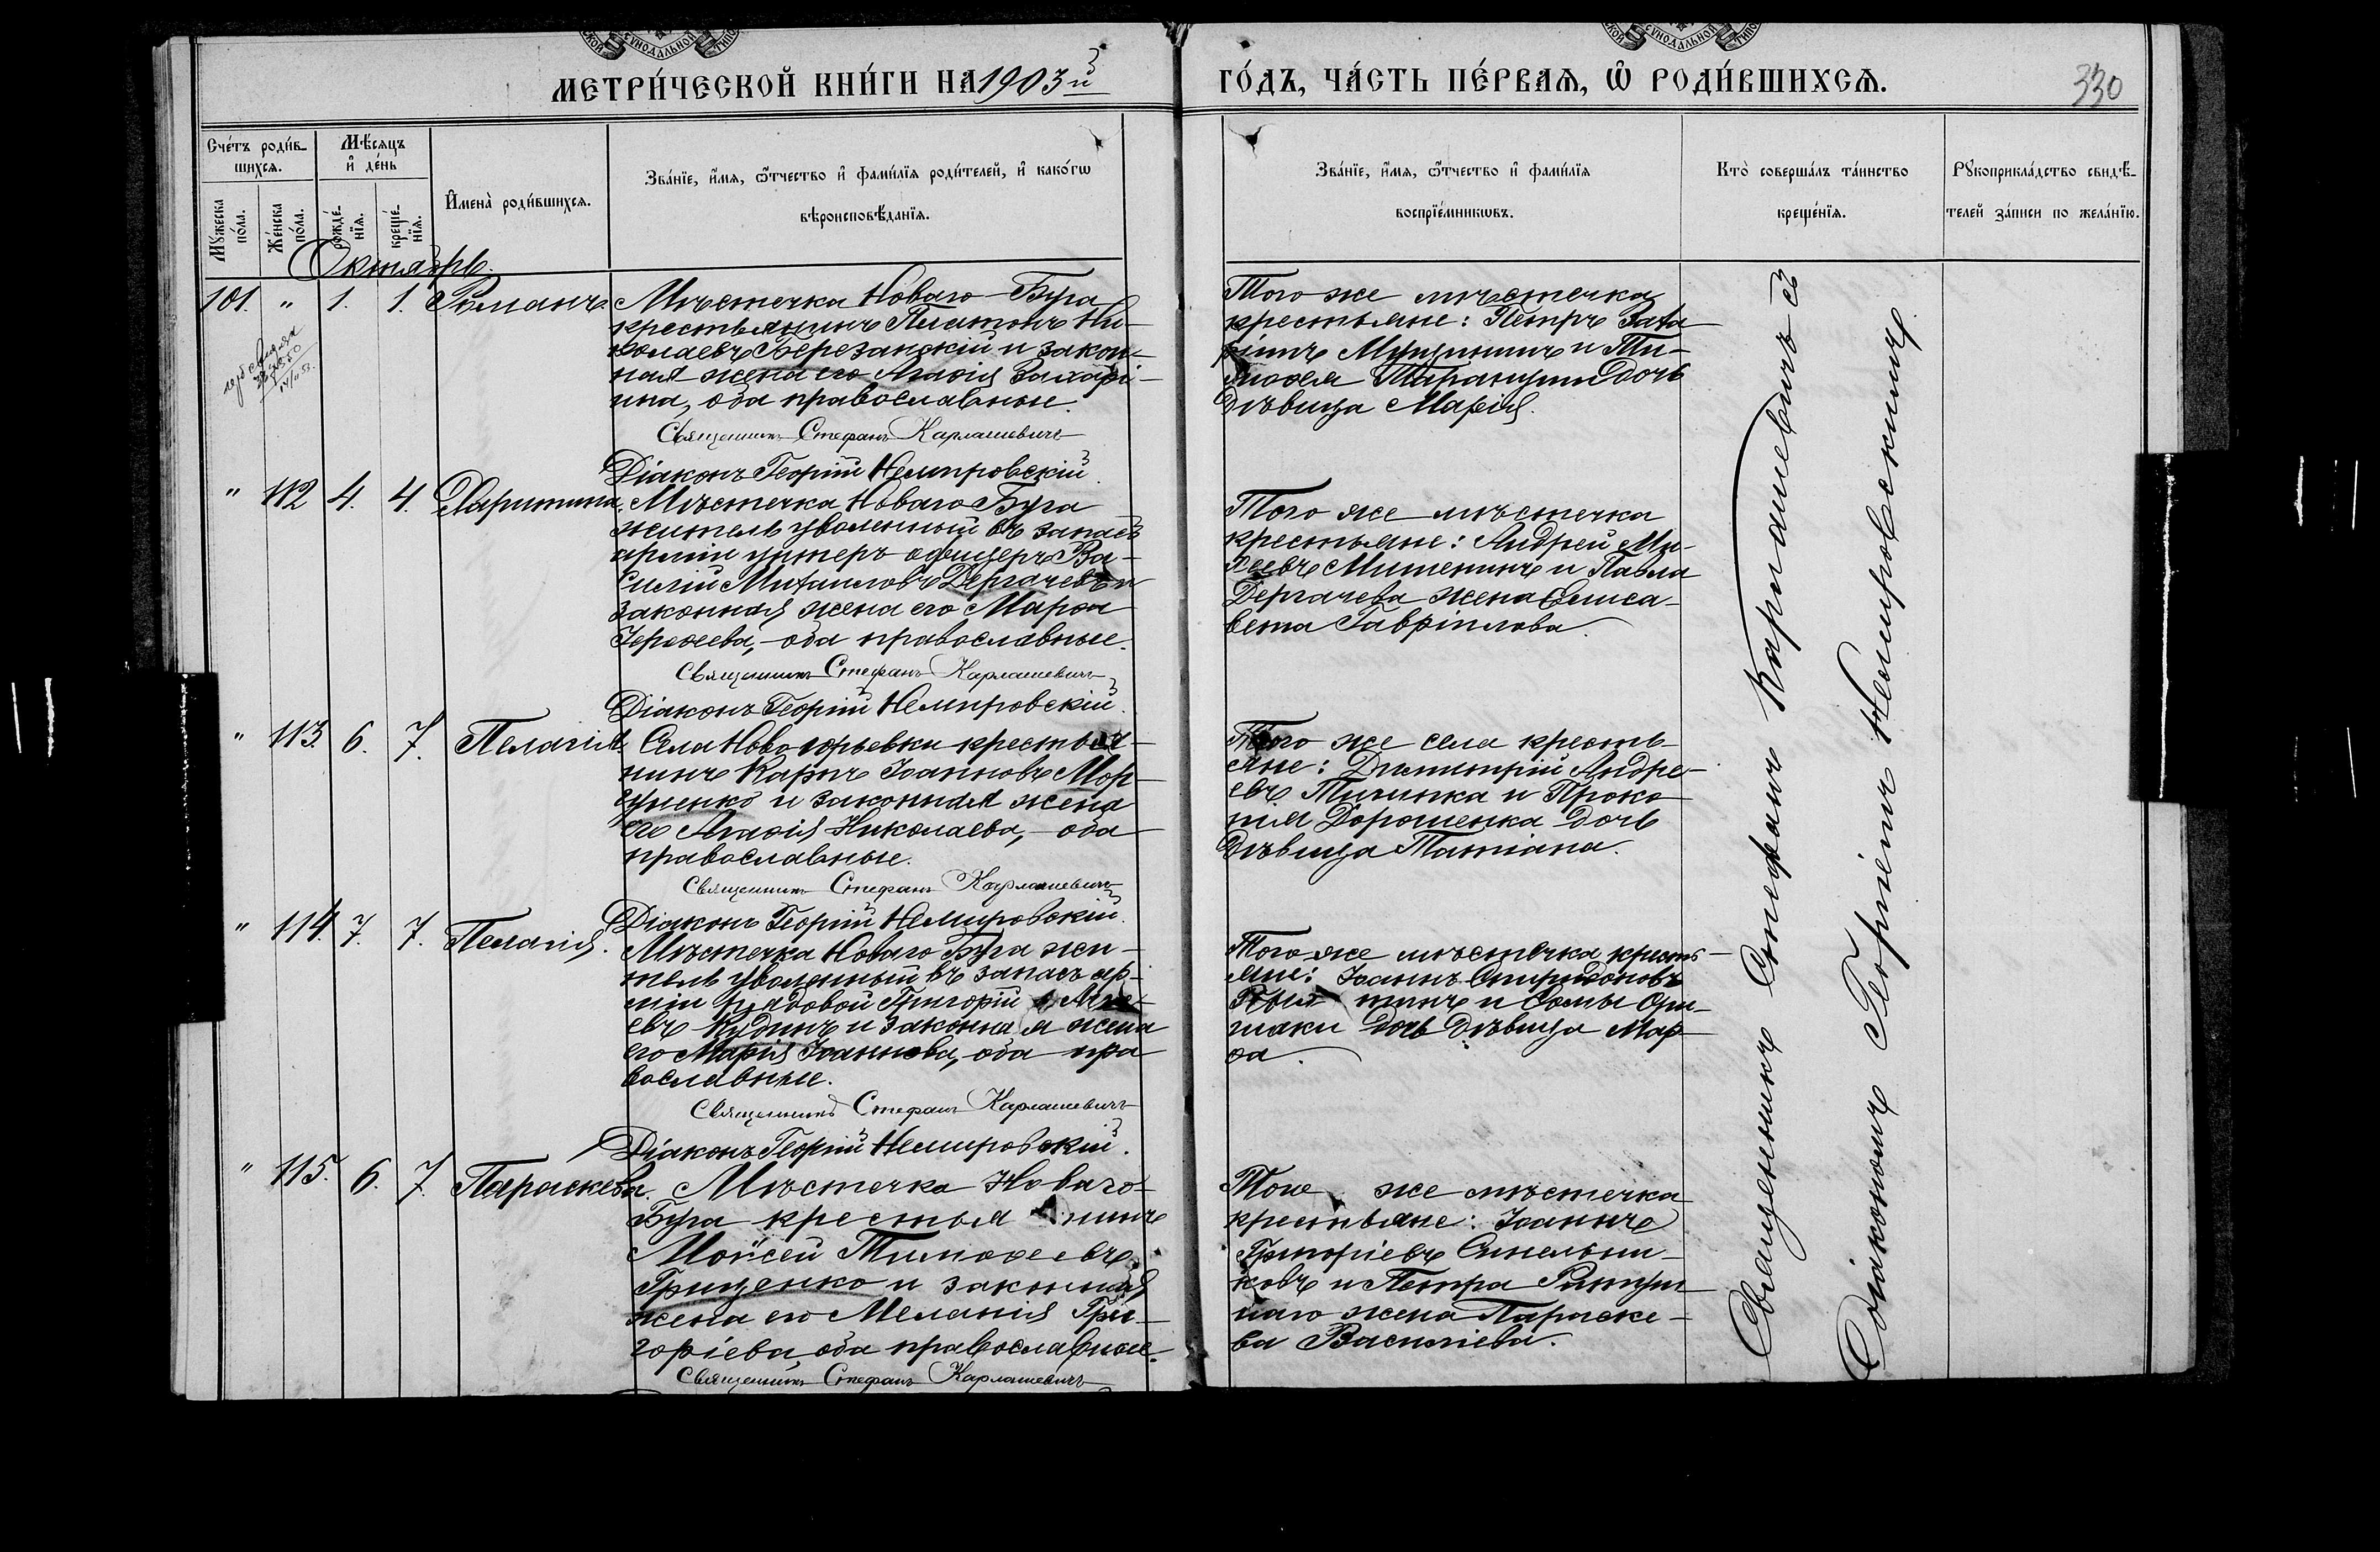 МЕТРИ́ЧЕСКОЙ КНИ́ГИ НА 1903й
ГО́ДЪ, ЧА́СТЬ ПЕ́РВАѦ, Ѡ҆ РОДИ́ВШИХСѦ.
330
Сче́тъ роди́в-
шихсѧ.
Мѣ́сѧцъ
и҆ де́нь
И҆мена̀ роди́вшихсѧ.
Зва́нїе, и҆́мѧ, ѻ҆́тчество и҆ фами́лїѧ роди́телей, и҆ како́гѡ
вѣроисповѣ́данїѧ.
Мꙋ́жеска
по́ла.
Же́нска
по́ла.
рожде́-
нїѧ.
креще́-
нїѧ.
Зва́нїе, и҆́мѧ, ѻ҆́тчество и҆ фами́лїѧ
воспрїе́мникѡвъ.
Кто̀ соверша́лъ та́инство
креще́нїѧ.
Рꙋкоприкла́дство свидѣ́-
телей за́писи по жела́нїю.
Октябрь.
101. " 1. 1. Романъ
Мѣстечка Новаго-Буга
крестьянинъ Платонъ Ни-
колаевъ Березанскій и закон-
ная жена его Агаѳія Захарі-
ина, оба православные.
Священникъ Стефанъ Карлашевичъ
Діаконъ Георгій Немировскій.
Того же мѣстечка
крестьяне: Петръ Заха
ріинъ и Ти-
моѳея дочь
дѣвица Марія.
" 112 4. 4. Харитина.
Мѣстечка Новаго Буга
житель уволенный въ запасъ
арміи унтеръ офицеръ Ва-
силій Михаиловъ Дергачевъ и
законная жена его Марѳа
Іероѳеева,-оба православные.
Священникъ Стефанъ Карлашевичъ
Діаконъ Георгій Немировскій.
Того же мѣстечка
крестьяне: Андрей Ми-
хеевъ Митенинъ и Павла
Дергачева жена Елиса-
вета Гавріилова.
" 113. 6. 7. Пелагія
Села Новоюрьевки крестья-
нинъ Карпъ Іоанновъ Мор
гуненко и законная жена
его Агаѳія Николаева,-оба
православные.
Священникъ Стефанъ Карлашевичъ
Діаконъ Георгій Немировскій.
Того же села кресть-
яне: Димитрій Андре-
евъ и Проко
пія Дорошенка дочь
дѣвица Татіана.
" 114. 7. 7. Пелагія.
Мѣстечка Новаго Буга жи-
тель уволенный въ запасъ ар-
міи рядовой Григорій
евъ Кудинъ и законная жена
его Марія Іоаннова,-оба пра
вославные.
Священникъ Стефанъ Карлашевичъ
Діаконъ Георгій Немировскій.
Того же мѣстечка кресть-
яне: Іоаннъ Спиридоновъ
и Ѳомы
дочь дѣвица Мар
ѳа.
" 115. 6. 7. Параскева.
Мѣстечка Новаго-
Буга крестьянинъ
Моѵсей Тимоѳеевъ
Грищенко и законная
жена его Меланія Гри-
горіева, оба православные.
Священникъ Стефанъ Карлашевичъ
Того же мѣстечка
крестьяне: Іоаннъ
Григоріевъ Синельни-
ковъ и Петра
жена Параске-
ва Василіева.
Священникъ Стефанъ Карлашевичъ съ
діакономъ Георгіемъ Немировскимъ.